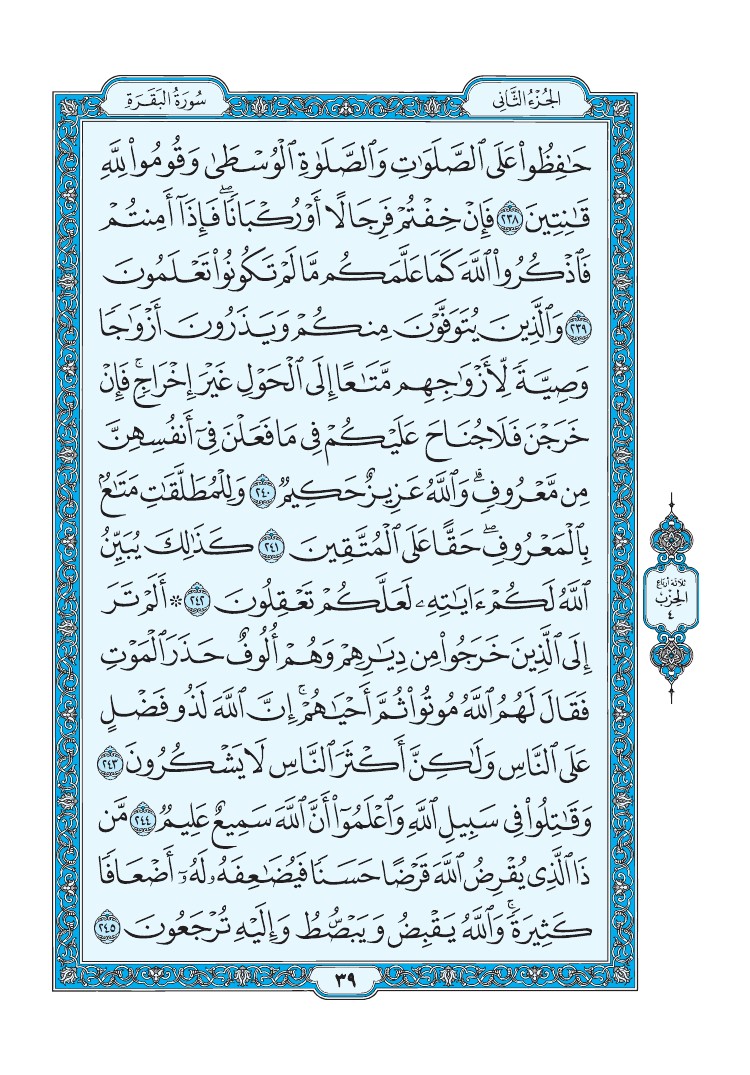 الجُزْءُ الثَّانِي
سُورَةُ البَقَرَةِ
حَٰفِظُوا۟ عَلَى ٱلصَّلَوَٰتِ وَٱلصَّلَوٰةِ ٱلْوُسْطَىٰ وَقُومُوا۟ لِلَّهِ
قَٰنِتِينَ ٢٣٨ فَإِنْ خِفْتُمْ فَرِجَالًا أَوْ رُكْبَانًا ۖ فَإِذَآ أَمِنتُمْ
فَٱذْكُرُوا۟ ٱللَّهَ كَمَا عَلَّمَكُم مَّا لَمْ تَكُونُوا۟ تَعْلَمُونَ
٢٣٩ وَٱلَّذِينَ يُتَوَفَّوْنَ مِنكُمْ وَيَذَرُونَ أَزْوَٰجًا
وَصِيَّةً لِّأَزْوَٰجِهِم مَّتَٰعًا إِلَى ٱلْحَوْلِ غَيْرَ إِخْرَاجٍ ۚ فَإِنْ
خَرَجْنَ فَلَا جُنَاحَ عَلَيْكُمْ فِى مَا فَعَلْنَ فِىٓ أَنفُسِهِنَّ
مِن مَّعْرُوفٍ ۗ وَٱللَّهُ عَزِيزٌ حَكِيمٌ ٢٤٠ وَلِلْمُطَلَّقَٰتِ مَتَٰعٌۢ
بِٱلْمَعْرُوفِ ۖ حَقًّا عَلَى ٱلْمُتَّقِينَ ٢٤١ كَذَٰلِكَ يُبَيِّنُ
ٱللَّهُ لَكُمْ ءَايَٰتِهِۦ لَعَلَّكُمْ تَعْقِلُونَ ٢٤٢ ۞ أَلَمْ تَرَ
إِلَى ٱلَّذِينَ خَرَجُوا۟ مِن دِيَٰرِهِمْ وَهُمْ أُلُوفٌ حَذَرَ ٱلْمَوْتِ
فَقَالَ لَهُمُ ٱللَّهُ مُوتُوا۟ ثُمَّ أَحْيَٰهُمْ ۚ إِنَّ ٱللَّهَ لَذُو فَضْلٍ
عَلَى ٱلنَّاسِ وَلَٰكِنَّ أَكْثَرَ ٱلنَّاسِ لَا يَشْكُرُونَ ٢٤٣
وَقَٰتِلُوا۟ فِى سَبِيلِ ٱللَّهِ وَٱعْلَمُوٓا۟ أَنَّ ٱللَّهَ سَمِيعٌ عَلِيمٌ ٢٤٤ مَّن
ذَا ٱلَّذِى يُقْرِضُ ٱللَّهَ قَرْضًا حَسَنًا فَيُضَٰعِفَهُۥ لَهُۥٓ أَضْعَافًا
كَثِيرَةً ۚ وَٱللَّهُ يَقْبِضُ وَيَبْصُۜطُ وَإِلَيْهِ تُرْجَعُونَ ٢٤٥
ثلاثة أرباع
الحزب
٤
٣٩